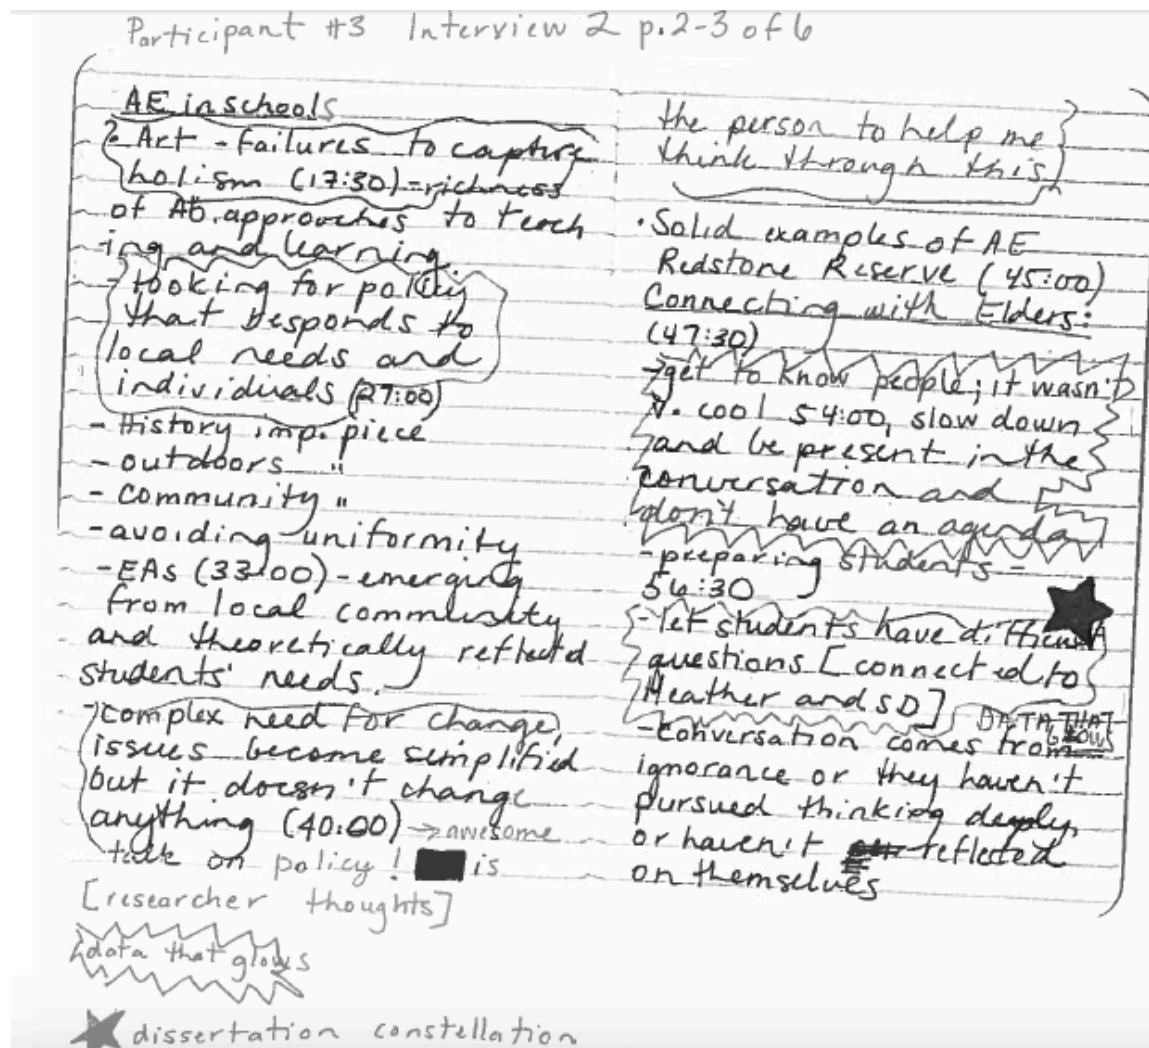 Participant #3 Interview 2 p.2-3 of 6
AE in schools
? Art - failures to capture
holism (17:30) - richness
of Ab. approaches to teach
ing and learning.
- looking for policy
that responds to
local needs and
individuals (27:00)
- History imp. piece
- outdoors "
- community "
- avoiding uniformity
- EAs (33:00) - emerging
from local community
and theoretically reflected
students' needs.
- complex need for change,
issues become simplified
but it doesn't change
anything (40:00) → awesome
talk on policy! is
[researcher thoughts]
data that glows
dissertation constellation
the person to help me
think through this
• Solid examples of AE
Redstone Reserve (45:00)
Connecting with Elders:
(47:30)
- get to know people; it wasn't
v. cool 54:00, slow down
and be present in the
conversation and
don't have an agenda
- preparing students -
56:30
- let students have difficult
questions [connected to
Heather and SD]
DATA THAT
GLOWS
- conversation comes from
ignorance or they haven't
pursued thinking deeply
or haven't reflected
on themselves